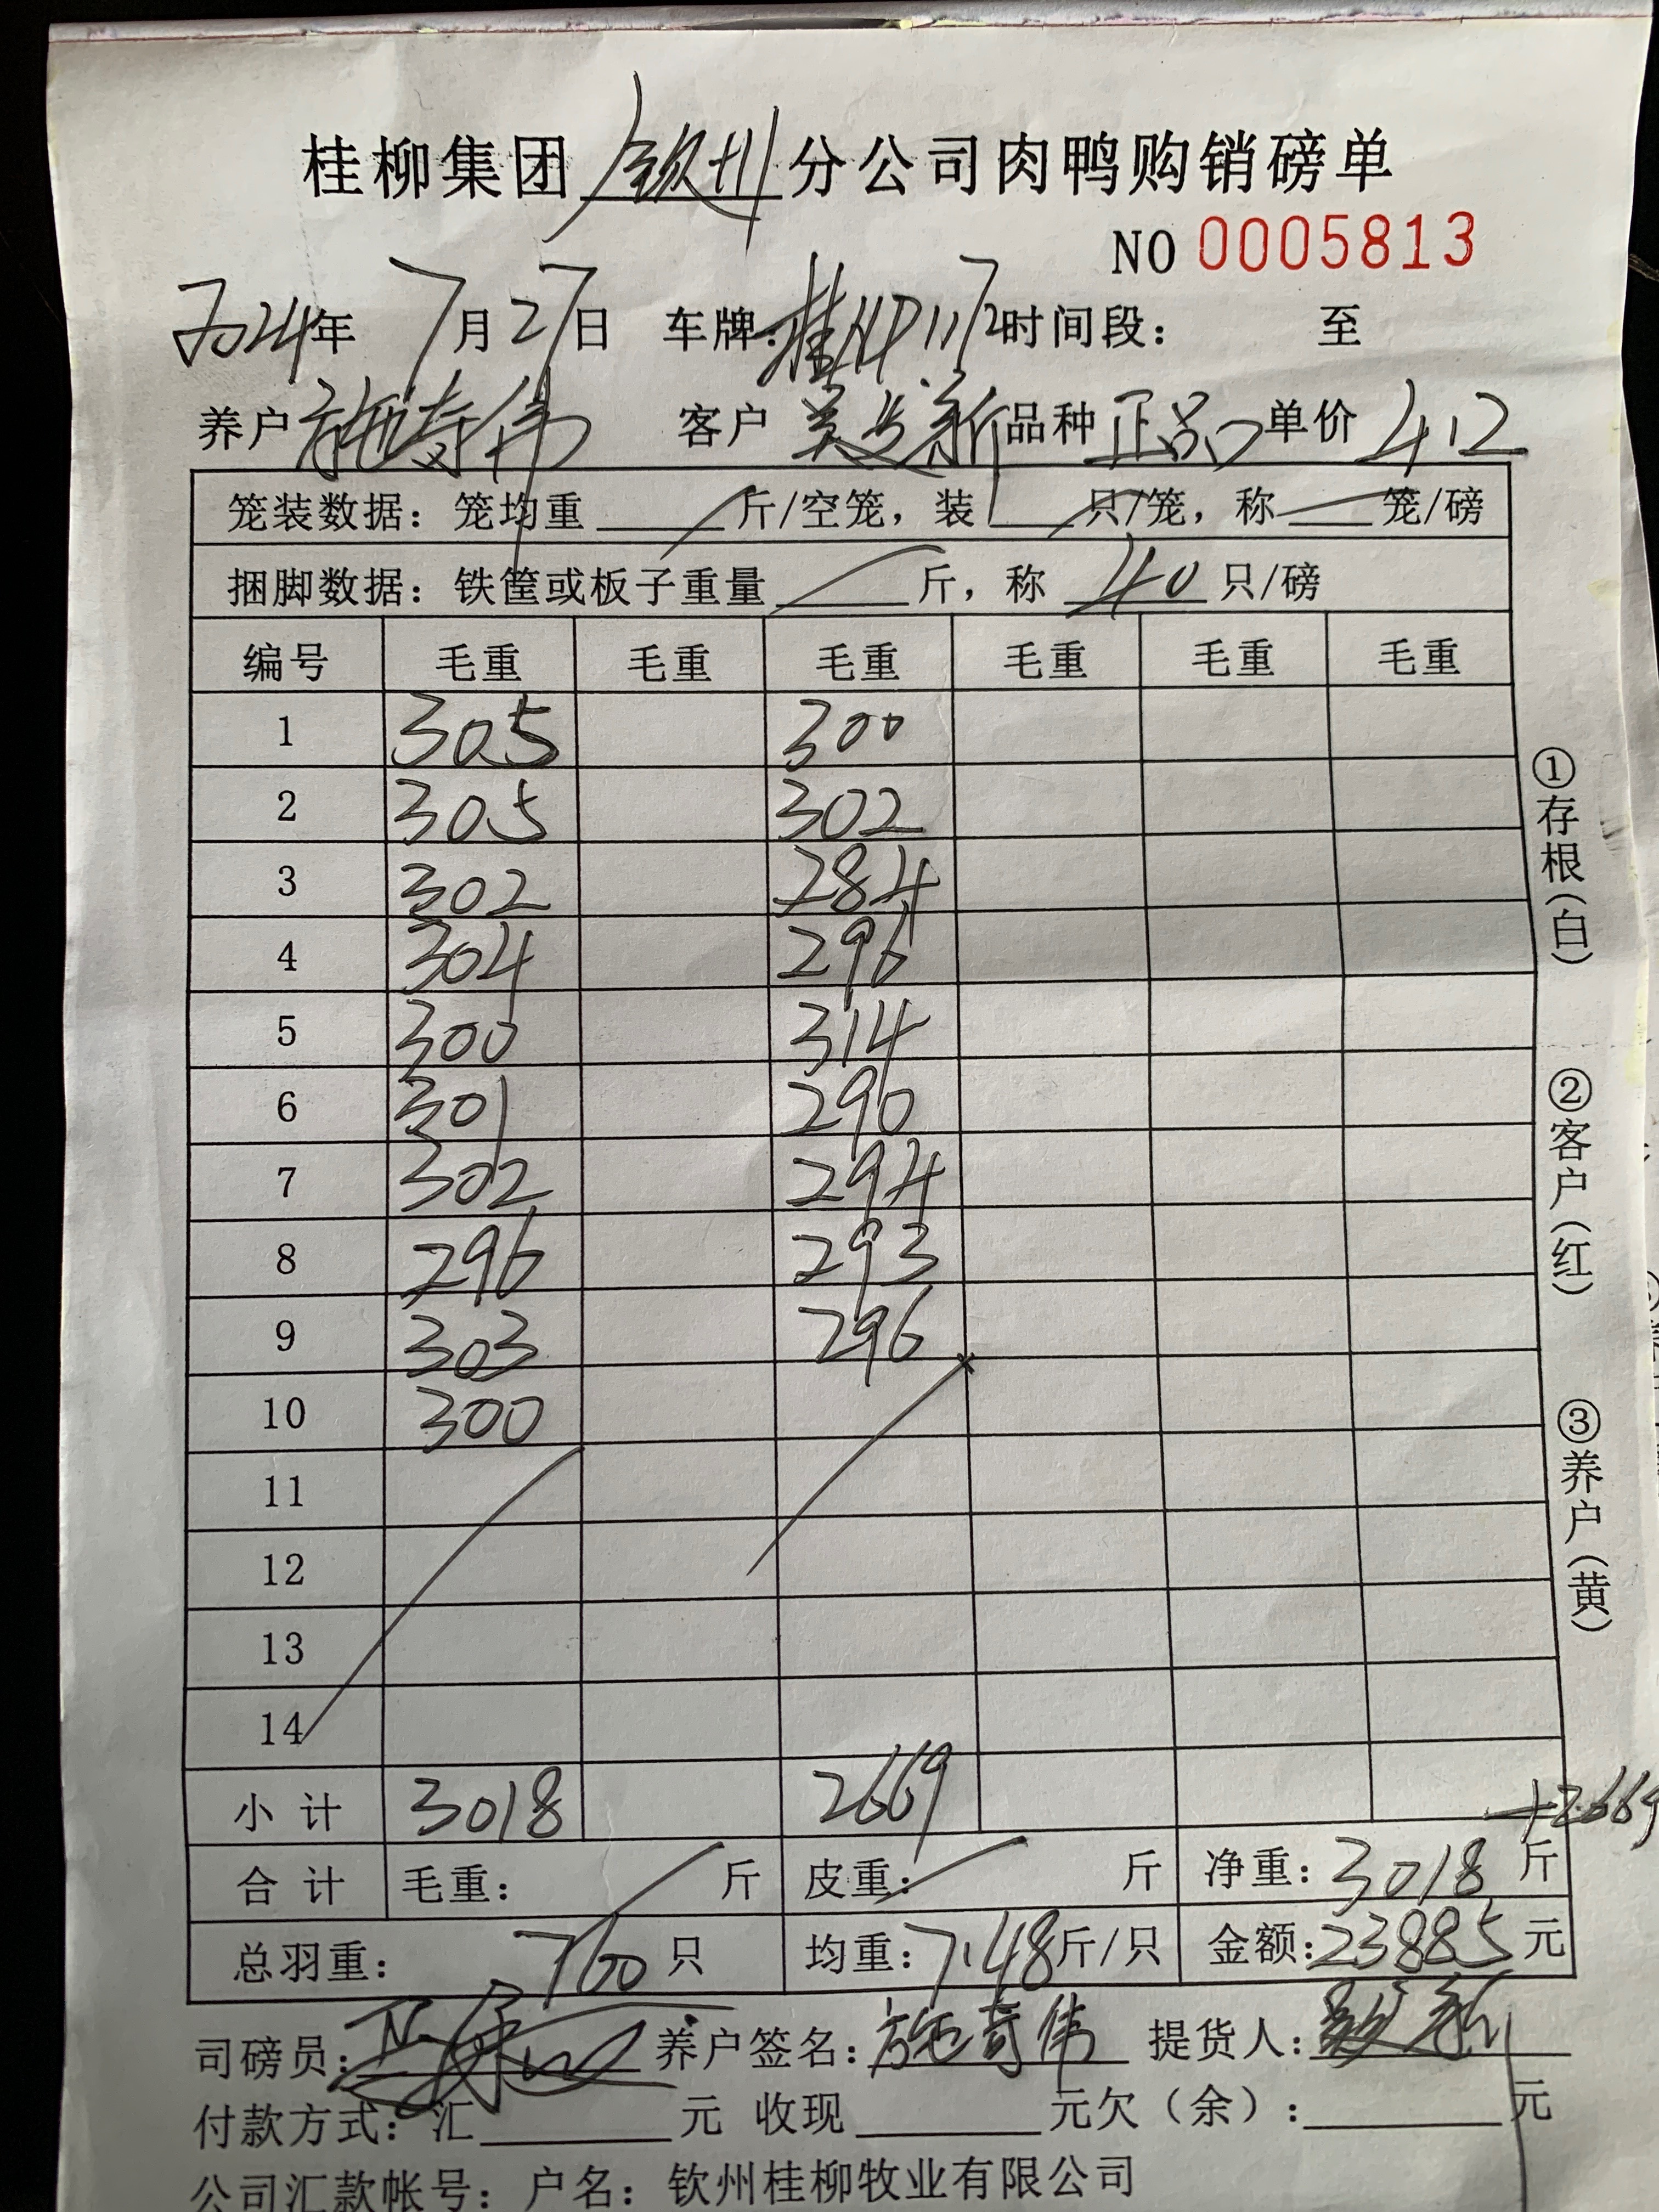 桂柳集团钦州分公司肉鸭购销磅单
NO 0005813
2024年 7月27日 车牌:桂 时间段: 至
养户施奇伟 客户 新 品种正品 单价 4.12
笼装数据: 笼均重 斤/空笼, 装 只/笼, 称 笼/磅
捆脚数据: 铁筐或板子重量 斤, 称 40 只/磅
编号 毛重 毛重 毛重 毛重 毛重 毛重
1 305 300
2 305 302
3 302 284
4 304 296
5 300 314
6 301 290
7 302 294
8 296 293
9 303 296
10 300
11
12
13
14
小计 3018 2669 +2669
合计 毛重: 斤 皮重: 斤 净重: 3018 斤
总羽重: 760 只 均重: 7.48斤/只 金额: 23885 元
司磅员: 养户签名: 施奇伟 提货人: 新
付款方式: 汇 元 收现 元欠(余): 元
公司汇款帐号: 户名: 钦州桂柳牧业有限公司
①存根(白)
②客户(红)
③养户(黄)